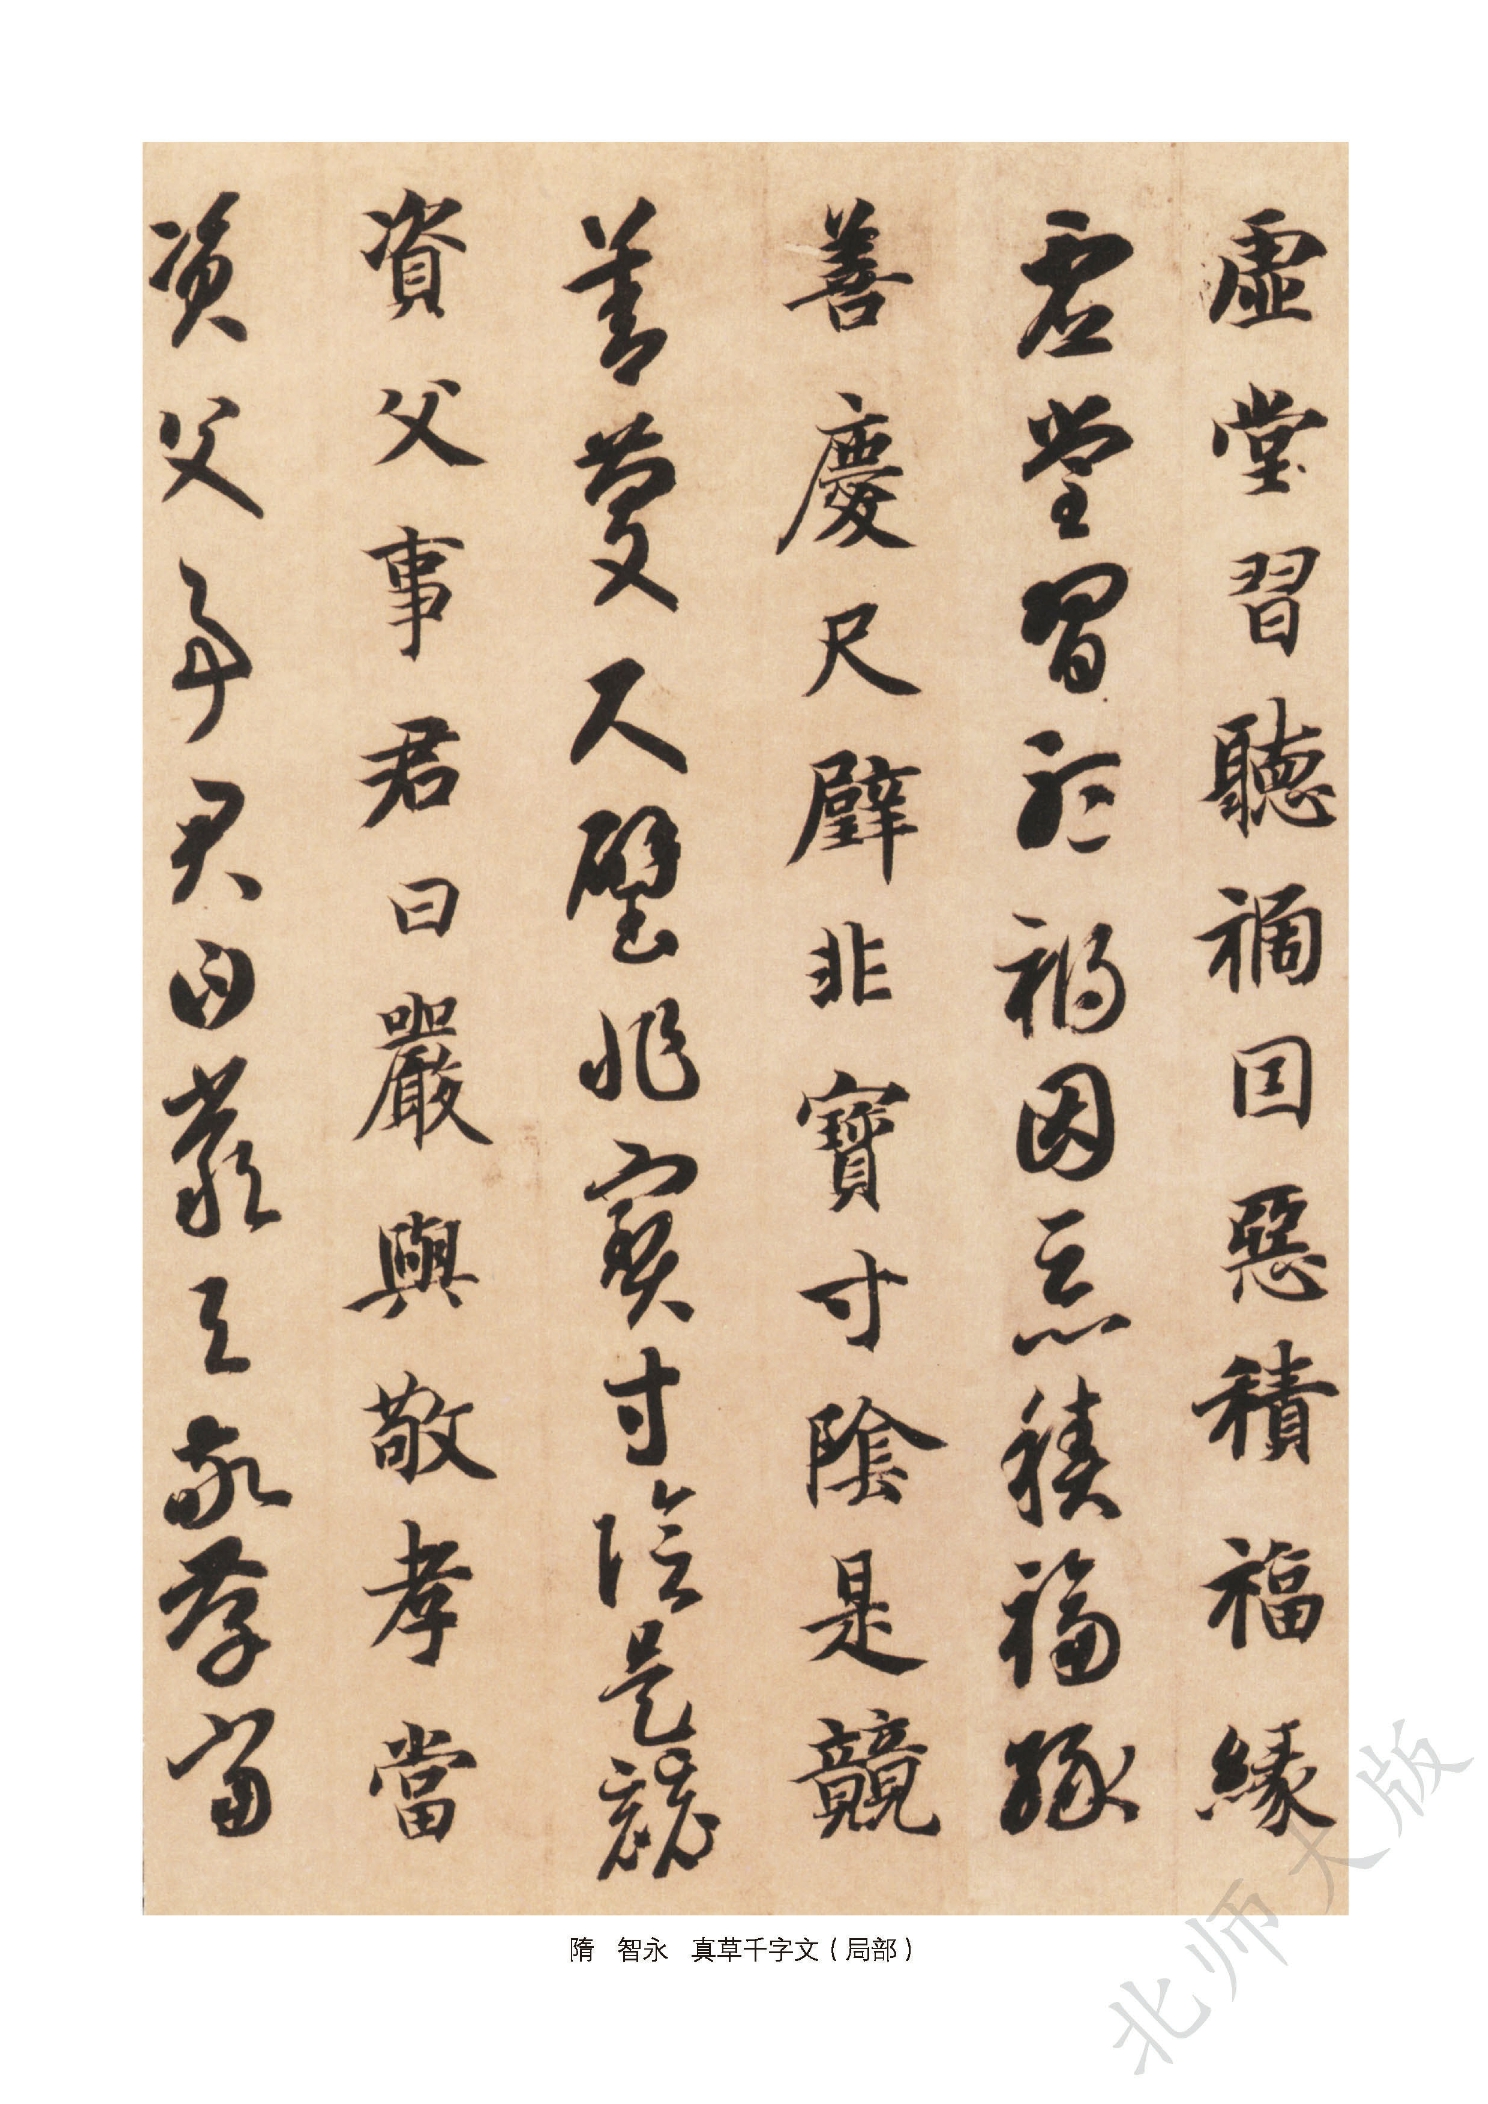 虛堂習聽禍因惡積福緣
虛堂習聽禍因惡積福緣
善慶尺璧非寶寸陰是競
善慶尺璧非寶寸陰是競
資父事君曰嚴與敬孝當
資父事君曰嚴與敬孝當
隋 智永 真草千字文（局部）
北师大版